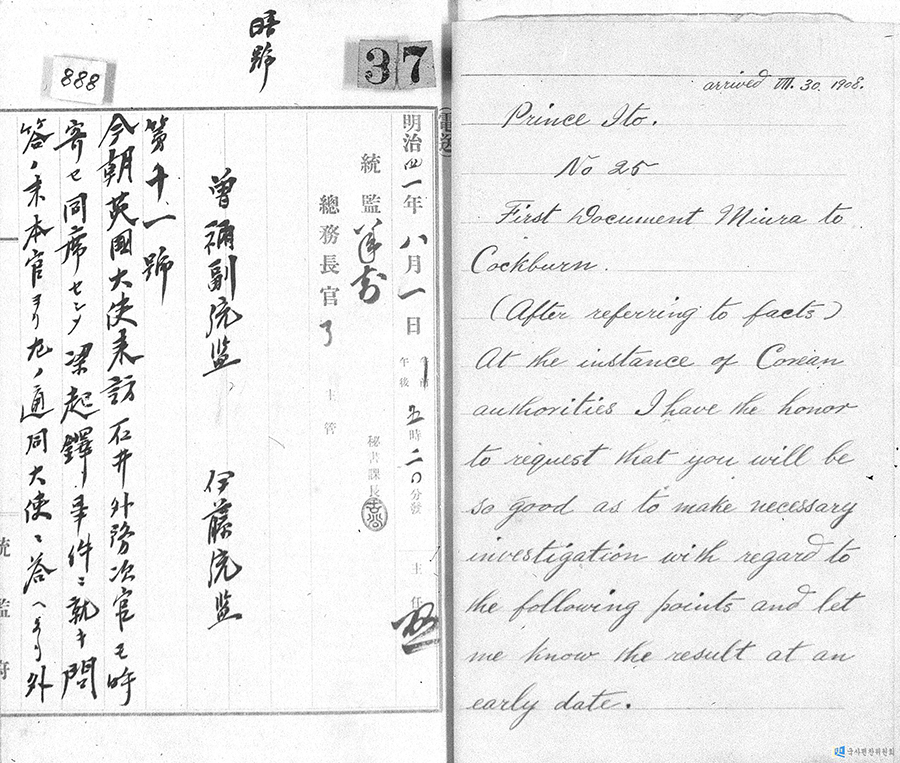 暗號
37
888
電送
明治四一年八月一日
午前
午後
五時二〇分發
統監
總務長官
秘書課長
主管
主任
曾禰副統監
伊藤統監
第十一號
今朝英國大使来訪石井外務次官モ呼
寄セ同席セシメ梁起鐸事件ニ就キ問
答ノ末本官ヨリ左ノ通同大使ニ答ヘ
外
統監府
arrived VIII. 30. 1908.
Prince Ito.
No 25
First Document Miura to
Cockburn.
(After referring to facts)
At the instance of Corean
authorities I have the honor
to request that you will be
so good as to make necessary
investigation with regard to
the following points and let
me know the result at an
early date.
국사편찬위원회